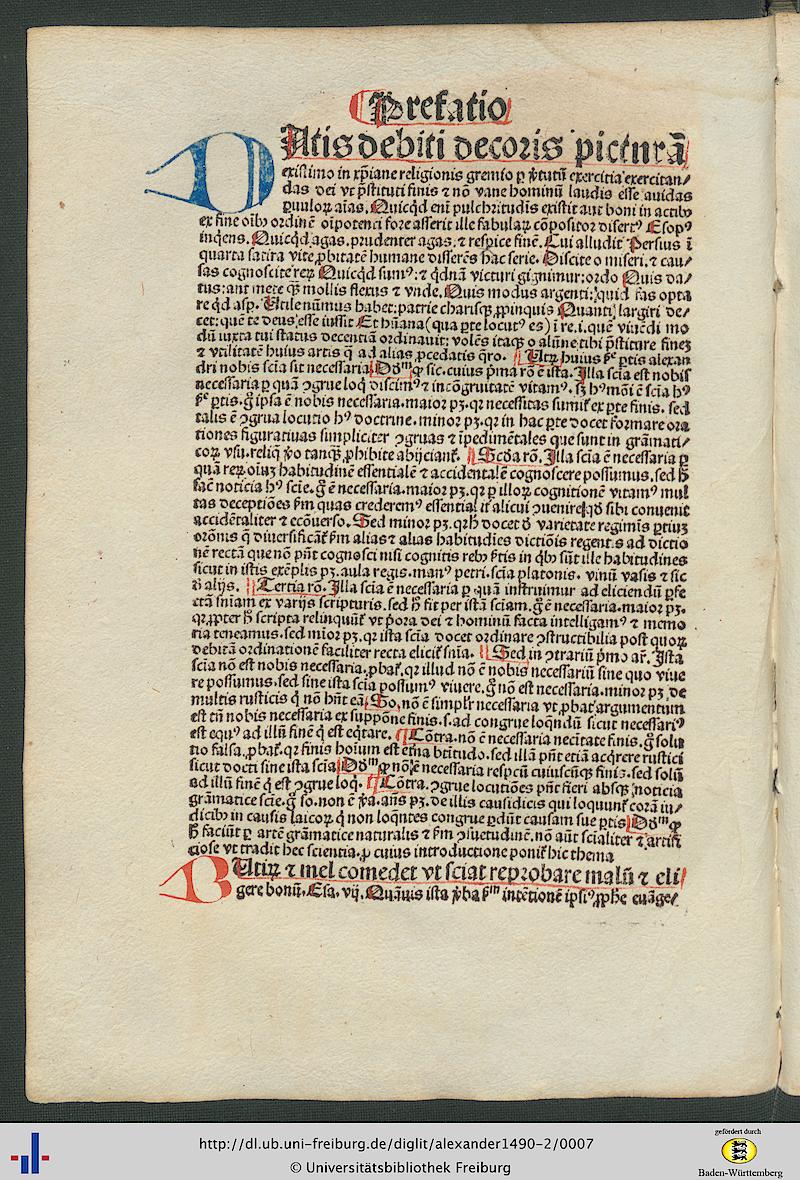 Prefatio
Atis debiti decoris picturā
existimo in xp̄iane religionis gremio ꝑ v̓tutū exercitia exercitan⸗
das dei vt p̄stituti finis ⁊ nō vane hominū laudis esse auidas
ꝑuuloꝝ aīas. Quicqd eni pulchritudis existit aut boni in actibꝰ
ex fine oībꝰ ordinē oīpotenci fore asserit ille fabulaꝝ cōpositor disertꝰ Esopꝰ
inqens. Quicqd agas, prudenter agas, ⁊ respice finē. Cui alludit Persius ī
quarta satira vite ꝓbitatē humane disserēs hac serie. Discite o miseri, ⁊ cau⸗
sas cognoscite reꝝ Quicqd sumꝰ: ⁊ qdnā victuri gignimur: ordo Quis da⸗
tus: aut mete qȝ mollis flexus ⁊ vnde. Quis modus argenti: quid fas opta
re qd asp. Utile nūmus habet: patrie charisqȝ ꝓpinquis Quantū largiri de⸗
cet: quē te deus esse iussit Et hūana (qua ꝑte locutꝰ es) ī re.i.quē viuēdi mo
dū iuxta tui status decentiā ordinauit: volēs itaqȝ o alūne tibi p̄stiture finez
⁊ vtilitatē huius artis q̄ ad alias ꝓcedatis q̄ro. Utꝝ huius ẜe ꝑtis alexan
dri nobis scīa sit necessaria Dōm ꝙ sic. cuius pͥma rō ē ista. Illa scīa est nobis
necessaria ꝑ quā ꝯgrue loq̄ discimꝰ ⁊ incōgruitatē vitamꝰ. sȝ hꝰmōi ē scīa hꝰ
ẜe ꝑtis. g̊ ipsa ē nobis necessaria. maior pȝ. qr necessitas sumiẜ ex ꝑte finis. sed
talis ē ꝯgrua locutio hꝰ doctrine. minor pȝ. qr in hac ꝑte docet formare ora
tiones figuratiuas simpliciter ꝯgruas ⁊ īpedimētales que sunt in grāmati⸗
coꝝ vsu. reliq̄ v̓o tanqȝ ꝓhibite abijciant᷑. Scd̄a rō. Illa scīa ē necessaria ꝑ
quā reꝝ oīuȝ habitudinē essentialē ⁊ accidentalē cognoscere possumus. sed h̄
fac̄ noticia hꝰ scīe. g̊ ē necessaria. maior pȝ. qr ꝑ illoꝝ cognitionē vitamꝰ mul
tas deceptiōes ẜm quas crederemꝰ essentialit᷑ alicui ꝯuenire qd sibi conuenit
accidētaliter ⁊ ecōuerso. Sed minor pȝ. qr h̄ docet d̄ varietate regimīs ꝑtiuȝ
orōnis q̄ diuersificāt᷑ ẜm alias ⁊ alias habitudīes dictiōis regentis ad dictio
nē rectā que nō pn̄t cognosci nisi cognitis rebꝰ ẜtis in qbꝰ sūt ille habitudines
sicut in istis exēplis pȝ. aula regis. manꝰ petri. scīa platonis. vinū vasis ⁊ sic
d̄ alijs. Tertia rō. Illa scīa ē necessaria ꝑ quā instruimur ad eliciendū ꝑfe
ctā sniam ex varijs scripturis. sed h̄ fit per istā sciam. g̊ ē necessaria. maior pȝ.
qr ꝓpter h̄ scripta relinquūt᷑ vt v̓ora dei ⁊ hominū facta intelligamꝰ ⁊ memo
ria teneamus. sed mīor pȝ. qr ista scīa docet ordinare ꝯstructibilia post quoꝝ
debitā ordinationē faciliter recta elicit᷑ snīa. Sed in ꝯtrariū pͥmo ar᷑. Ista
scīa nō est nobis necessaria. ꝓbat᷑. qr illud nō ē nobis necessariū sine quo viue
re possumus. sed sine ista scīa possumꝰ viuere. g̊ nō est necessaria. minor pȝ de
multis rusticis q̄ nō hn̄t eā So. nō ē simplr necessaria vt ꝓbat argumentum
est tn̄ nobis necessaria ex suppōne finis. s. ad congrue loqndū sicut necessariꝰ
est equꝰ ad illū finē q̄ est eqtare. Cōtra. nō ē necessaria necītate finis. g̊ solu
tio falsa. ꝓbat᷑. qr finis hoīum est etn̄a btitudo. sed illā pn̄t etiā acqrere rustici
sicut docti sine ista scīa Dōm ꝙ nō ē necessaria respectu cuiuscūqȝ finis. sed solū
ad illū finē q̄ est ꝯgrue loq̄. Cōtra. ꝯgrue locutiōes pn̄t fieri absqȝ noticia
grāmatice scīe. g̊ so. non ē v̓a. an̄s pȝ. de illis causidicis qui loquunt᷑ corā iu⸗
dicibꝰ in causis laicoꝝ q̄ non loqntes congrue ꝑdūt causam sue ꝑtis Dōm ꝙ
h̄ faciūt ꝑ artē grāmatice naturalis ⁊ ẜm ꝯsuetudinē. nō aūt scīaliter ⁊ artifi
ciose vt tradit hec scientia. ꝓ cuius introductione ponit᷑ hic thema
Butiꝝ ⁊ mel comedet vt sciat reprobare malū ⁊ eli⸗
gere bonū. Esa. vij. Quāuis ista v̓ba ẜm intētionē ipsiꝰ ꝓphe euāge⸗
http://dl.ub.uni-freiburg.de/diglit/alexander1490-2/0007
© Universitätsbibliothek Freiburg
gefördert durch
Baden-Württemberg